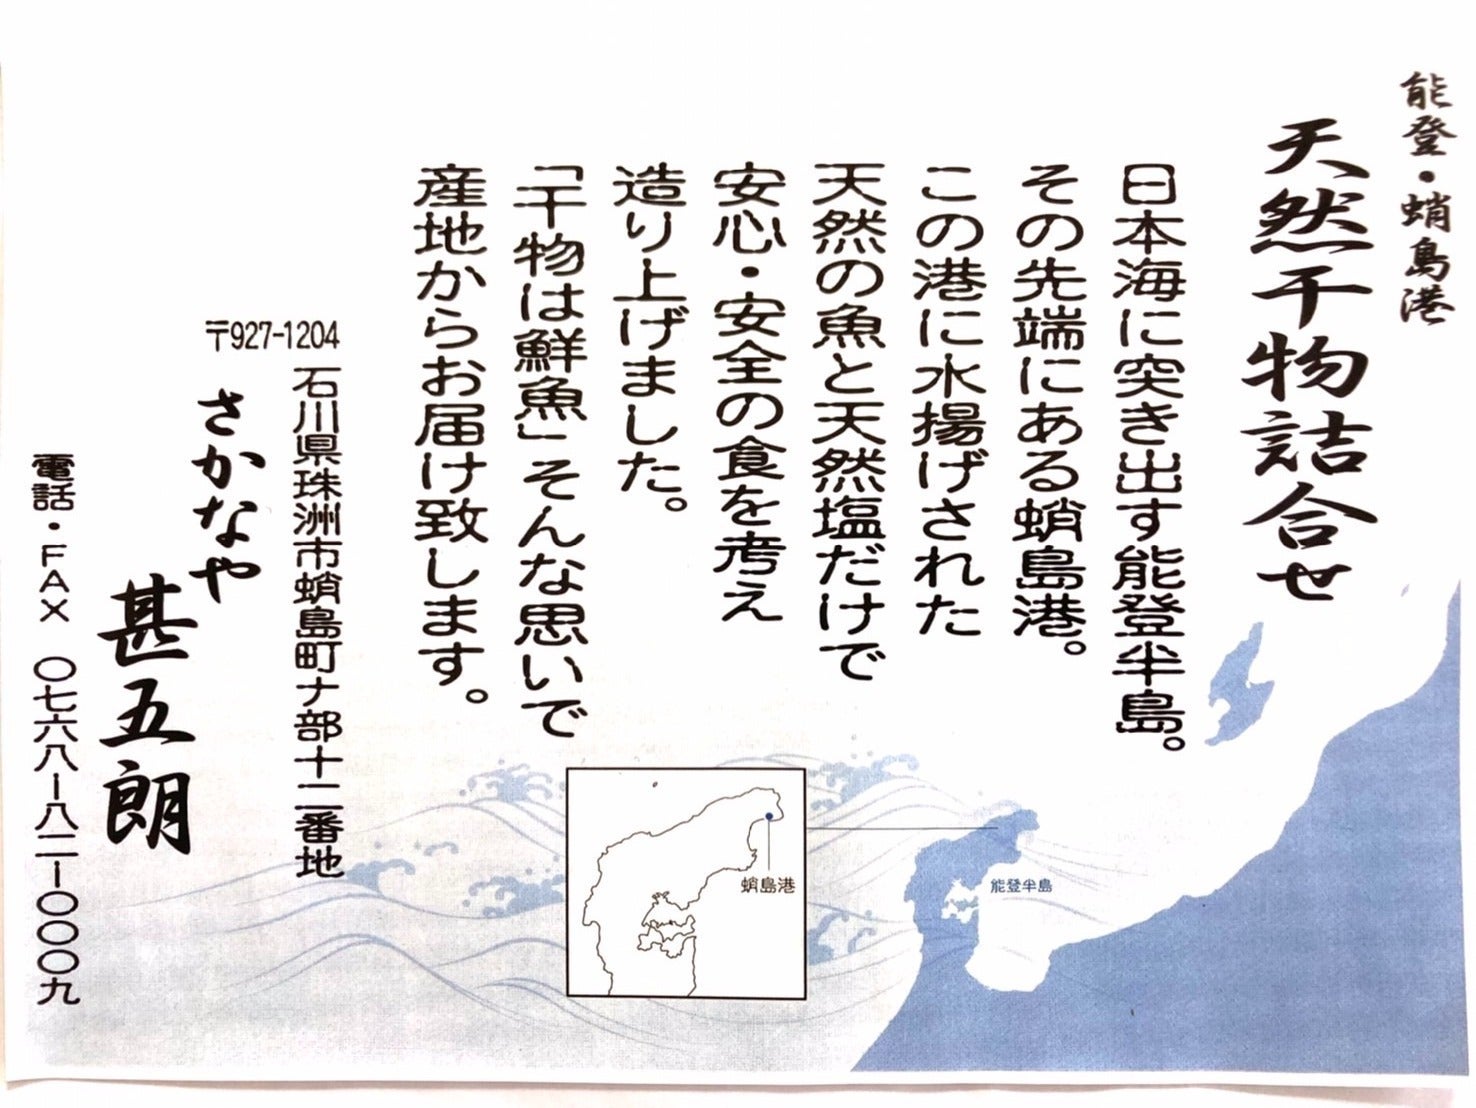 能登・蛸島港
天然干物詰合せ
日本海に突き出す能登半島。
その先端にある蛸島港。
この港に水揚げされた
天然の魚と天然塩だけで
安心・安全の食を考え
造り上げました。
「干物は鮮魚」そんな思いで
産地からお届け致します。
〒927-1204
石川県珠洲市蛸島町ナ部十二番地
さかなや
甚五朗
電話・FAX 〇七六八ー八二ー〇〇〇九
蛸島港
能登半島